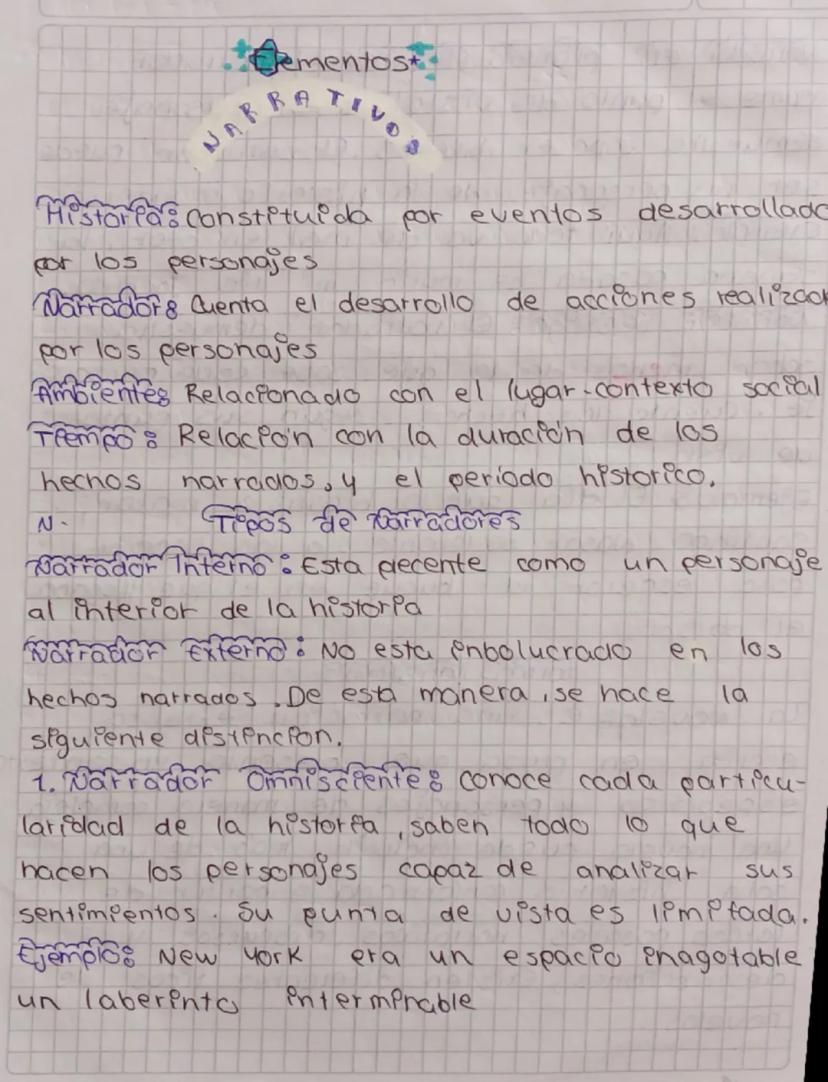 Elementos
NARRATIVOS
Historia: constituida por eventos desarrollado
por los personajes
Narrador: Cuenta el desarrollo de acciones realizad
por los personajes
Ambiente: Relacionado con el lugar-contexto social
Tiempo: Relación con la duración de los
hechos narrados, y el período historico.
N. Tipos de Narradores
Narrador Interno: Esta pecente como un personaje
al interior de la historia
Narrador Externo: No esta inbolucrado en los
hechos narrados. De esta manera, se hace la
siguiente distincion.
1. Narrador Omnisciente: conoce cada particu-
laridad de la historia, saben todo lo que
hacen los personajes capaz de analizar sus
sentimientos. Su punta de vista es limitada.
Ejemplo: New York era un espacio inagotable
un laberinto interminable